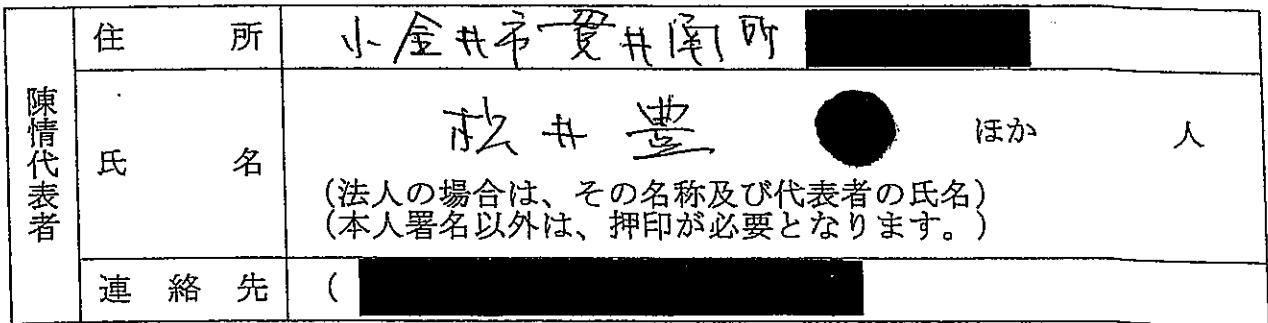 陳情代表者
住所 小金井市貫井南町
氏名 松井豊 ほか 人
(法人の場合は、その名称及び代表者の氏名)
(本人署名以外は、押印が必要となります。)
連絡先 (